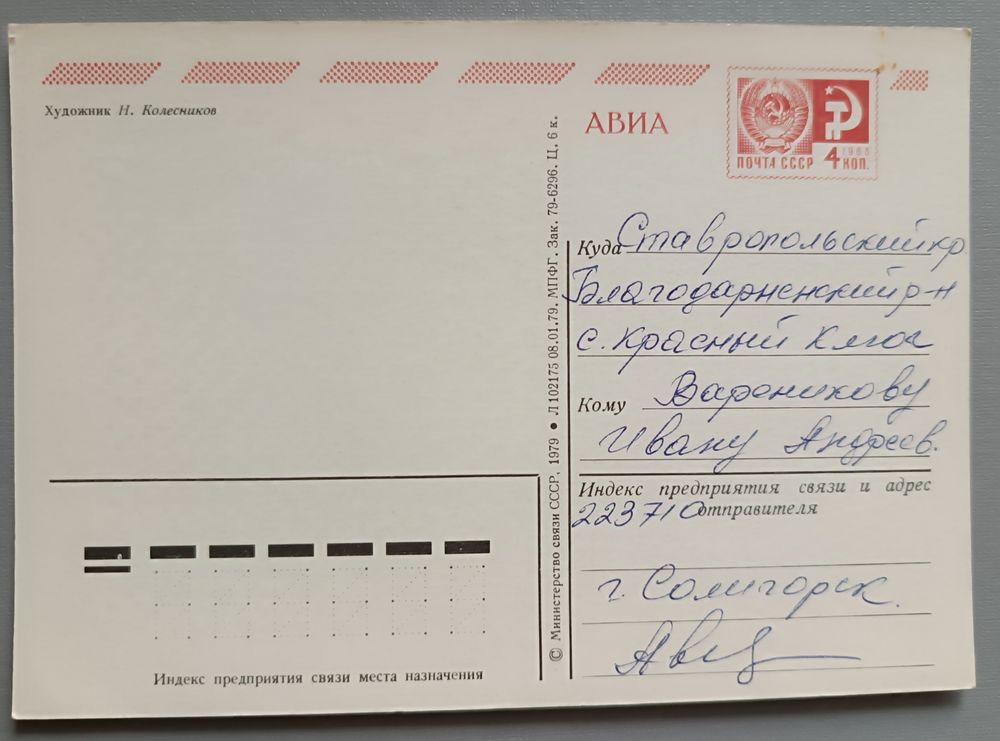 Художник Н. Колесников
АВИА
ПОЧТА СССР 4 КОП.
1966
© Министерство связи СССР, 1979 ● Л 102175 08.01.79. МПФГ. Зак. 79-6296. Ц. 6 к.
Куда Ставропольский кр.
Благодарненский р-н
с. Красный Ключ
Кому Вареникову
Ивану Андреев.
Индекс предприятия связи и адрес
223710 отправителя
г. Солигорск
Индекс предприятия связи места назначения